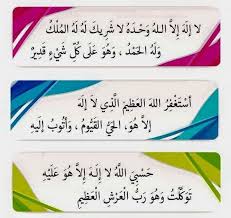 لا إلهَ إلاَّ اللهُ وَحْدَهُ لا شَرِيكَ لَهُ لَهُ المُلْكُ
وَلَهُ الحَمْدُ، وَهُوَ عَلَى كُلِّ شَيْءٍ قَدِيرٌ
أَسْتَغْفِرُ اللهَ العَظِيمَ الَّذِي لاَ إلهَ
إلاَّ هُوَ، الحَيُّ القَيُّومُ، وَأَتُوبُ إلَيهِ
حَسْبِيَ اللَّهُ لا إلَهَ إلاَّ هُوَ عَلَيْهِ
تَوَكَّلْتُ وَهُوَ رَبُّ العَرْشِ العَظِيمِ